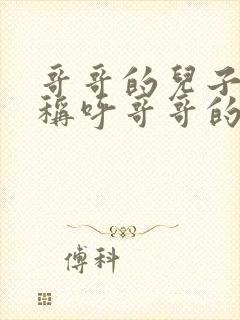 哥哥的兒子
稱呼哥哥的
傅科